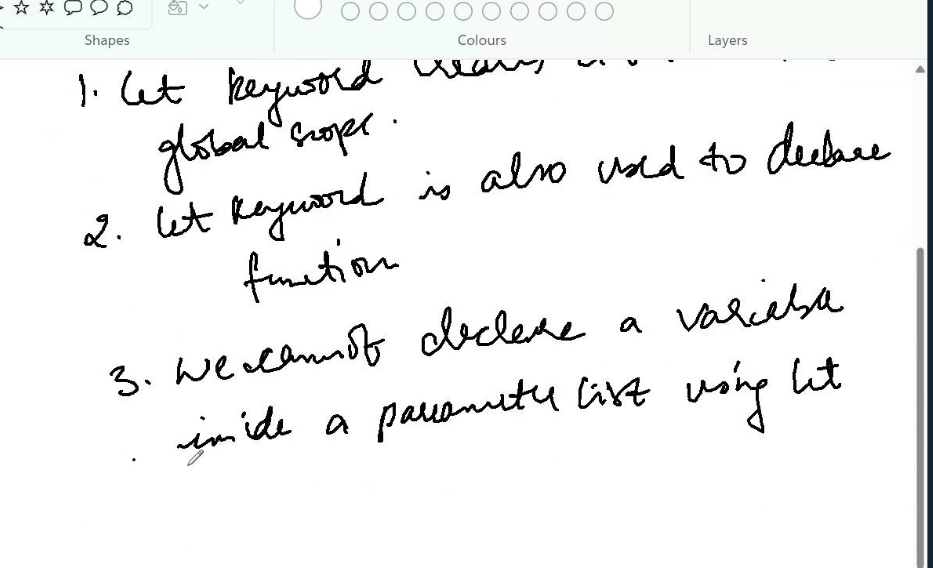 Shapes
Colours
Layers
1. let keyword
global scope.
2. let keyword is also used to declare
function
3. We cannot declare a variable
inside a parameter list using let